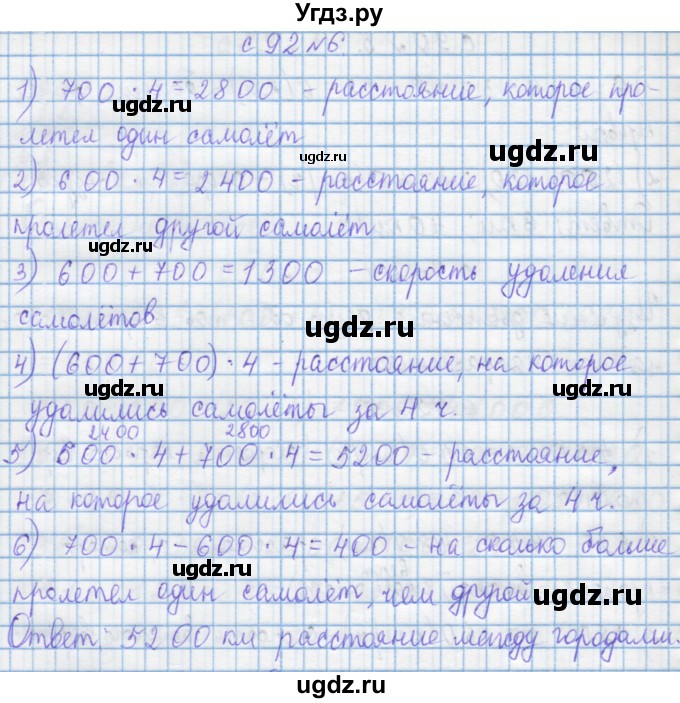 Угдз.ру
с 92 №6
1) 700 · 4 = 2800 – расстояние, которое про-
ugdz.ru
летел один самолёт
ugdz.ru
2) 600 · 4 = 2400 – расстояние, которое
пролетел другой самолёт
ugdz.ru
3) 600 + 700 = 1300 – скорость удаления
самолётов
ugdz.ru
4) (600 + 700) · 4 – расстояние, на которое
ugdz.ru ugdz.ru
удалились самолёты за 4 ч.
2400 2800
5) 600 · 4 + 700 · 4 = 5200 – расстояние,
на которое удалились самолёты за 4 ч.
6) 700 · 4 – 600 · 4 = 400 – на сколько больше
ugdz.ru
пролетел один самолёт, чем другой
ugdz.ru
Ответ: 5200 км расстояние между городами.
ugdz.ru
ugdz.ru